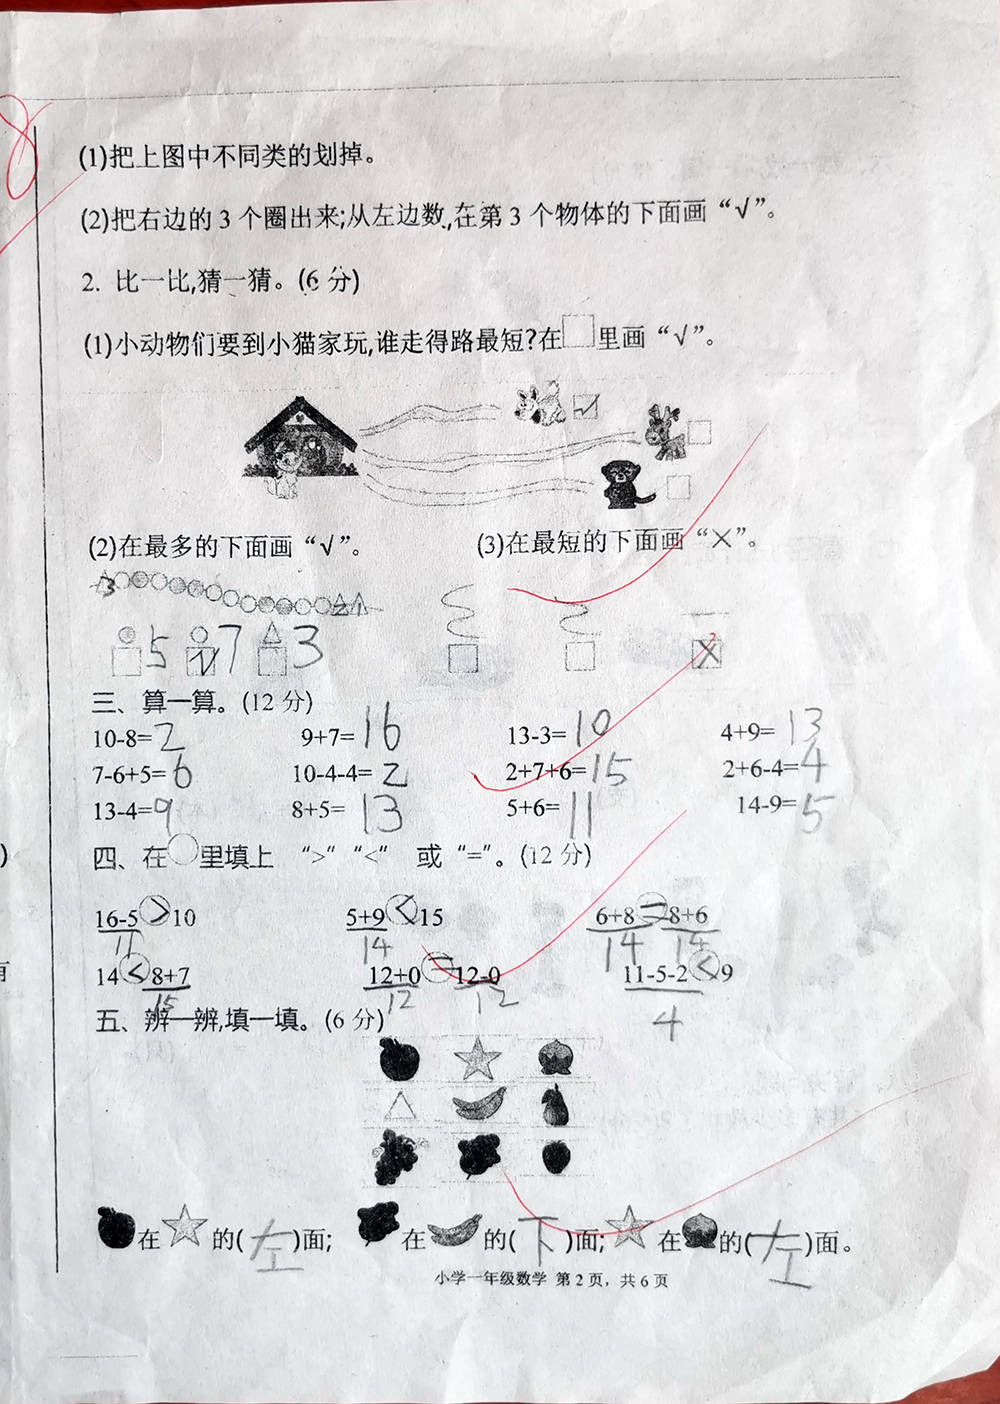 8
(1)把上图中不同类的划掉。
(2)把右边的 3 个圈出来;从左边数,在第 3 个物体的下面画“√”。
2. 比一比,猜一猜。(6 分)
(1)小动物们要到小猫家玩,谁走得路最短?在□里画“√”。
√
(2)在最多的下面画“√”。 (3)在最短的下面画“×”。
3 2 1
5 √ 7 3 × 2
三、算一算。(12 分)
10-8=2 9+7=16 13-3=10 4+9=13
7-6+5=6 10-4-4=2 2+7+6=15 2+6-4=4
13-4=9 8+5=13 5+6=11 14-9=5
四、在○里填上 “>”“<” 或“=”。(12 分)
16-5>10 5+9<15 6+8=8+6
11 14 14 14
14<8+7 12+0=12-0 11-5-2<9
15 12 12 4
五、辨一辨,填一填。(6 分)
在 的(左)面; 在 的(下)面; 在 的(左)面。
小学一年级数学 第 2 页，共 6 页